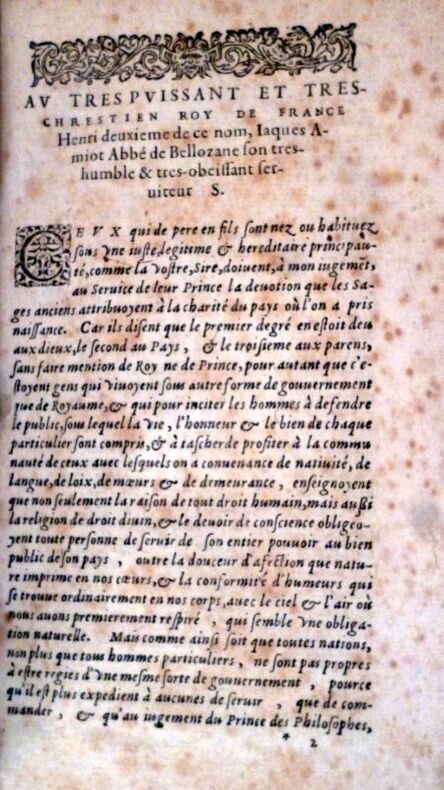 AV TRESPVISSANT ET TRES-
CHRESTIEN ROY DE FRANCE
Henri deuxieme de ce nom, Iaques A-
miot Abbé de Bellozane son tres-
humble & tres-obeissant ser-
uiteur S.
CEVX qui de pere en fils sont nez ou habituez
sous vne iuste, legitime & hereditaire principau-
té, comme la vostre, Sire, doiuent, à mon iugemẽt,
au Seruice de leur Prince la deuotion que les Sa-
ges anciens attribuoyent à la charité du pays où l'on a pris
naissance. Car ils disent que le premier degré en estoit deu
aux dieux, le second au Pays, & le troisieme aux parens,
sans faire mention de Roy ne de Prince, pour autant que c'e-
stoyent gens qui viuoyent sous autre forme de gouuernement
que de Royaume, & qui pour inciter les hommes à defendre
le public, sous lequel la vie, l'honneur & le bien de chaque
particulier sont compris, & à tascher de profiter à la commu
nauté de ceux auec lesquels on a conuenance de natiuité, de
langue, de loix, de mœurs & de demeurance, enseignoyent
que non seulement la raison de tout droit humain, mais aussi
la religion de droit diuin, & le deuoir de conscience obligeo-
yent toute personne de seruir de son entier pouuoir au bien
public de son pays, outre la douceur d'afection que natu-
re imprime en nos cœurs, & la conformité d'humeurs qui
se trouue ordinairement en nos corps, auec le ciel & l'air où
nous auons premierement respiré, qui semble vne obliga-
tion naturelle. Mais comme ainsi soit que toutes nations,
non plus que tous hommes particuliers, ne sont pas propres
à estre regies d'vne mesme sorte de gouuernement, pource
qu'il est plus expedient à aucunes de seruir, que de com-
mander, & qu'au iugement du Prince des Philosophes,
* 2